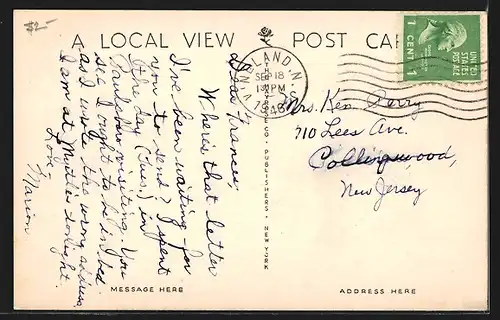 $2-
A LOCAL VIEW POST CAR
VINELAND N.J.
SEP 18
1 PM
1946
UNITED
STATES
POSTAGE
1 CENT 1
Dear Frances,
Where's that letter
I've been waiting for
you to send? I spent
the day (Tues.) in
visiting. You
see I ought to be in bed
as I wrote the wrong address
I am at Myrtle's tonight.
Love,
Marion
PUBLISHERS, NEW YORK
Mrs. Ken Derry
710 Lees Ave.
Collingswood,
New Jersey
MESSAGE HERE
ADDRESS HERE